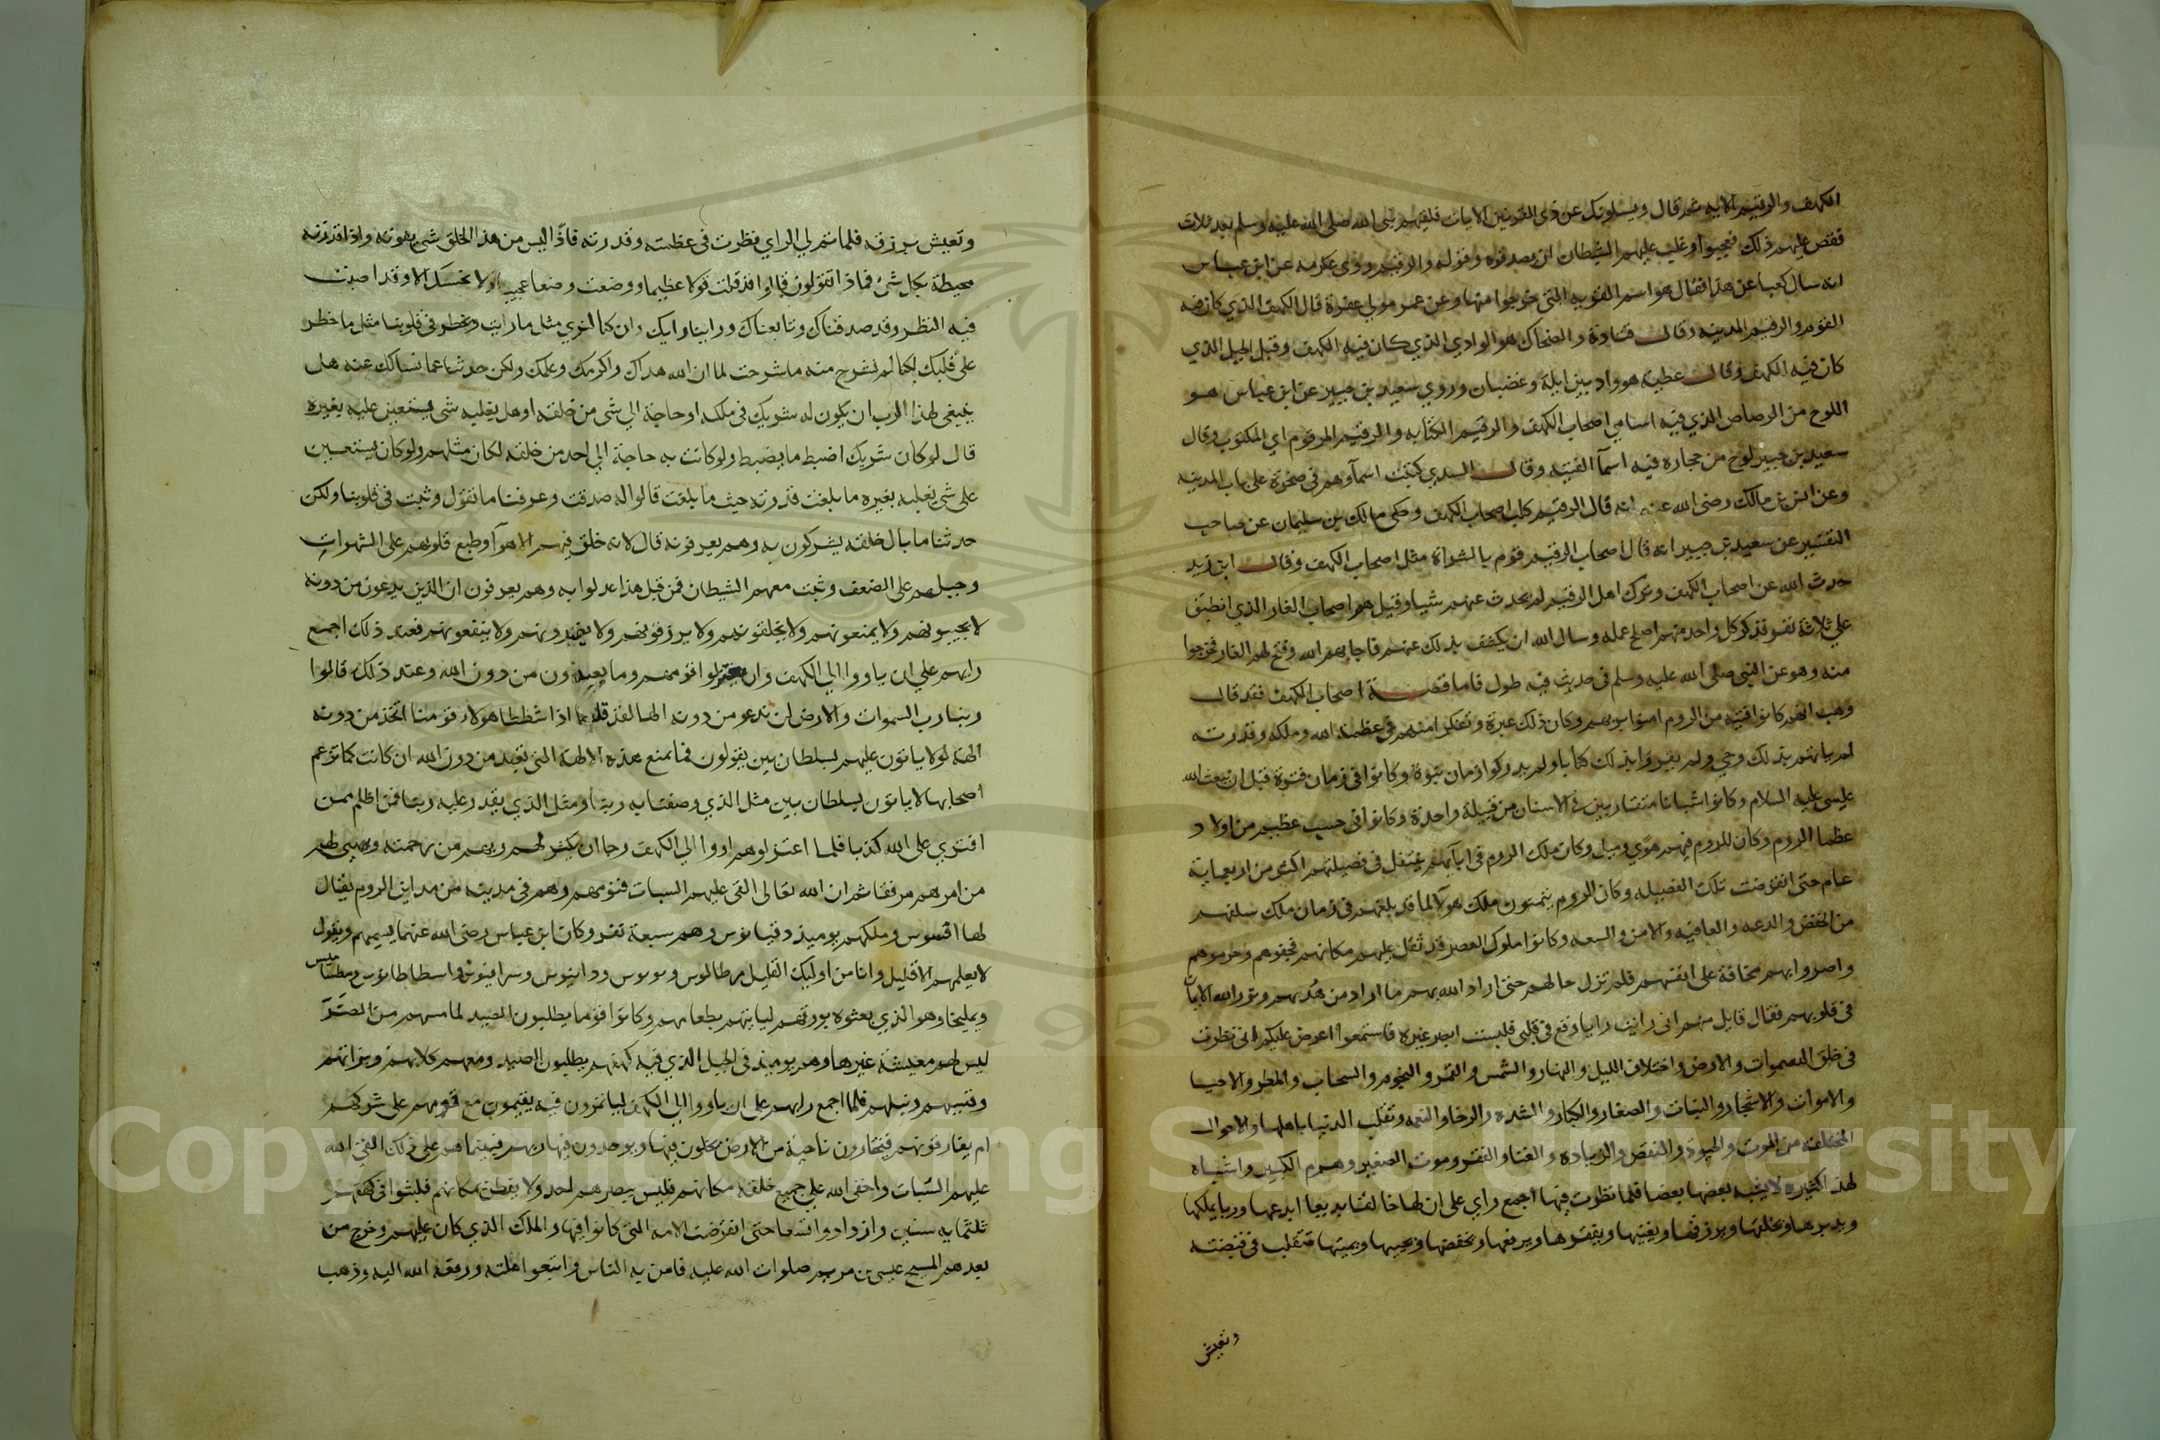 الكهف والرقيم الآية ثم قال ويسلونك عن ذي القرنين الايات فلقيهم نبي الله صلى الله عليه وسلم بعد ثلاث
فقص عليهم ذلك فعجبوا وغلب عليهم الشيطان ان يصدقوه وقوله والرقيم روى عكرمه عن ابن عباس
انه سال كعبا عن هذا فقال هو اسم القريه التي خرجوا منها وعن عمر مولى عفرة قال الكهف الذي كان فيه
القوم والرقيم المدينه وقال قتادة والضحاك هو الوادي الذي كان فيه الكهف وقيل الجبل الذي
كان فيه الكهف وقال عطيه هو واد بين ايلة وغضبان وروي سعيد بن جبير عن ابن عباس هو
اللوح من الرصاص الذي فيه اسامي اصحاب الكهف والرقيم الكتابه والرقيم المرقوم اي المكتوب وقال
سعيد بن جبير لوح من حجاره فيه اسمآ الفتيه وقال السدي كتبت اسماوهم في صخرة على باب المدينه
وعن انس بن مالك رضى الله عنه انه قال الرقيم كلب اصحاب الكهف وحكى مالك بن سليمان عن صاحب
التفسير عن سعيد بن جبير انه قال اصحاب الرقيم قوم بالشراة مثل اصحاب الكهف وقال ابن زيد
حدث الله عن اصحاب الكهف وترك اهل الرقيم لم يحدث عنهم شيا وقيل هم اصحاب الغار الذي انطبق
علي ثلاثة نفر فذكر كل واحد منهم اصلح عمله وسال الله ان يكشف بذلك عنهم فاجابهم الله وفتح لهم الغار فخرجوا
منه وهو عن النبي صلى الله عليه وسلم في حديث فيه طول فاما قصة اصحاب الكهف فقد قال
وهب انهم كانوا فتية من الروم امنوا بربهم وكان ذلك عبرة وتفكرا منهم في عظمة الله وملكه وقدرته
لم ياتهم بذلك وحي ولم يقروا بذلك كتابا ولم يدركوا زمان نبوة وكانوا في زمان فترة قبل ان يبعث الله
عيسى عليه السلام وكانوا شبانا متقاربين في الاسنان من قبيلة واحدة وكانوا في حسب عظيم من اولاد
عظما الروم وكان للروم فيهم هوي وميل وكان ملك الروم في ابآيهم ينتقل في فصيلتهم اكثر من اربعماية
عام حتى انقرضت تلك الفصيله وكان الروم يتمنون ملك هولآ لما قد بلغهم في زمان ملك سلفهم
من الخفض والدعه والعافيه والامن والسعه وكانوا ملوك العصر قد ثقل عليهم مكانهم فجفوهم وحرموهم
واضروا بهم مخافة على انفسهم فلم تزل حالهم حتى اراد الله بهم ما اراد من هديهم ونور الله الايمان
في قلوبهم فقال قايل منهم اني رايت رايا وقع في قلبي فلست ابصر غيره فاستمعوا اعرض عليكم اني نظرت
في خلق السموات والارض واختلاف الليل والنهار والشمس والقمر والنجوم والسحاب والمطر والاحيا
والاموات والاشجار والنبات والصغار والكبار والشده والرخا والنعمه وتقلب الدنيا باهلها والاحوال
المختلفه من الموت والحيوة والنقص والزيادة والغنا والفقر وموت الصغير وهرم الكبير واشياه
لهذ اكثيره لايشبه بعضها بعضا فلما نظرت فيها اجمع راي على ان لها خالقا بديعا ابدعها وربا يملكها
ويدبرها ويخلقها ويرزقها ويغنيها ويفقرها ويرفعها ويخفضها ويحييها ويميتها تتقلب في قبضته
وتعيش
وتعيش برزقه فلما تم لي الراي نظرت في عظمته وقدرته فاذا ليس من هذا الخلق شي يفوته واذا قدرته
محيطة بكل شئ فماذا تقولون قالوا قد قلت قولا عظيما ووضعت وضعا عجيبا ولا نحسبك الا وقد اصبت
فيه النظر وقد صدقناك وتابعناك وراينا رايك وان كنا لنري مثل ما رايت ويخطر في قلوبنا مثل ما خطر
على قلبك لكنا لم نشرح منه ما شرحت لما ان الله هداك واكرمك وعلمك ولكن حدثنا عما نسالك عنه هل
ينبغي لهذا الرب ان يكون له شريك في ملكه او حاجة الي شي من خلقه او هل يغلبه شي فيستعين عليه بغيره
قال لو كان شريك اضبط ما يضبط ولو كانت به حاجة الي احد من خلقه لكان مثلهم ولو كان يستعين
على شي يغلبه بغيره ما بلغت قدرته حيث ما بلغت قالوا له صدقت وعرفنا ما تقول وثبت في قلوبنا ولكن
حدثنا ما بال خلقه يشركون به وهم يعرفونه قال لانه خلق فيهم الاهوآ وطبع قلوبهم على الشهوات
وجبلهم على الضعف وثبت معهم الشيطان فمن قبل هذا عدلوا به وهم يعرفون ان الذين يدعون من دونه
لا يجيبونهم ولا يمنعونهم ولا يخلقونهم ولا يرزقونهم ولا يضرونهم ولا ينفعونهم فعند ذلك اجمع
رايهم علي ان ياووا الي الكهف وان يعتزلوا قومهم وما يعبدون من دون الله وعند ذلك قالوا
ربنا رب السموات والارض لن ندعو من دونه الها لقد قلنا اذا شططا هولاء قومنا اتخذ من دونه
الهة لولا ياتون عليهم بسلطان بين يقولون فما تمنع هذه الالهة التي تعبد من دون الله ان كانت كما تزعم
اصحابها لا ياتون بسلطان بين مثل الذي وصفنا به ربنا ومثل الذي يقدر عليه ربنا فمن اظلم ممن
افتري على الله كذبا فلما اعتزلوهم اووا الي الكهف رجا ان ينشر لهم ربهم من رحمته ويهيي لهم
من امرهم مرفقا ثم ان الله تعالى القى عليهم السبات فنومهم وهم في مدينة من مداين الروم يقال
لها افسوس وملكهم يوميذ دقيانوس وهم سبعة نفر وكان ابن عباس رضى الله عنهما يسميهم ويقول
لا يعلمهم الا قليل وانا من اوليك القليل مرطالوس ونونوس ودانيوس وسرافيوس واسطاطانوس ومكسلمينا
ويمليخا وهو الذي بعثوه بورقهم لياتيهم بطعامهم وكانوا قوما يطلبون الصيد لما مسهم من الضر
ليس لهم معيشة غيرها وهم يوميذ في الجبل الذي فيه كهفهم يطلبون الصيد ومعهم كلابهم وبزاتهم
وقسيهم ونبلهم فلما اجمع رايهم على ان ياووا الي الكهف ليا تمرون فيه يقيمون مع قومهم على شركهم
ام يفارقونهم فيختارون ناحية من الارض يحلون فيها ويوحدون فيها ربهم فبينما هم على ذلك القى الله
عليهم السبات واخفى الله على جميع خلقه مكانهم فليس يبصرهم احد ولا يفطن مكانهم فلبثوا في كهفهم
ثلثماية سنين وازدادوا تسعا حتى انقرضت الامه التي كانوا فيها والملك الذي كان عليهم وخرج من
بعدهم المسيح عيسى بن مريم صلوات الله عليه فامن به الناس واتبعوا ملته ورفعه الله اليه وذهب
Copyright © King Saud University